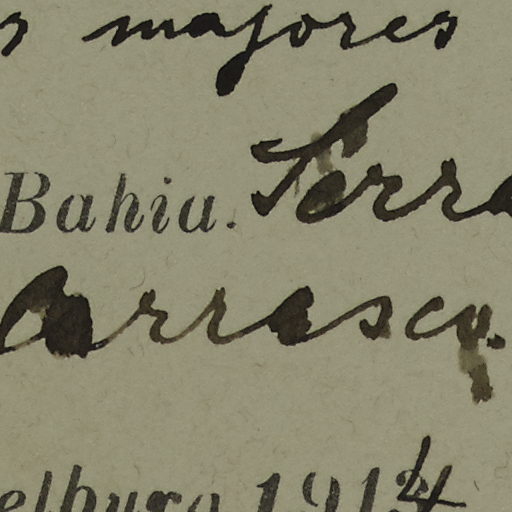 s majores
Bahia. Serra
Carrasco.
elburg 1914